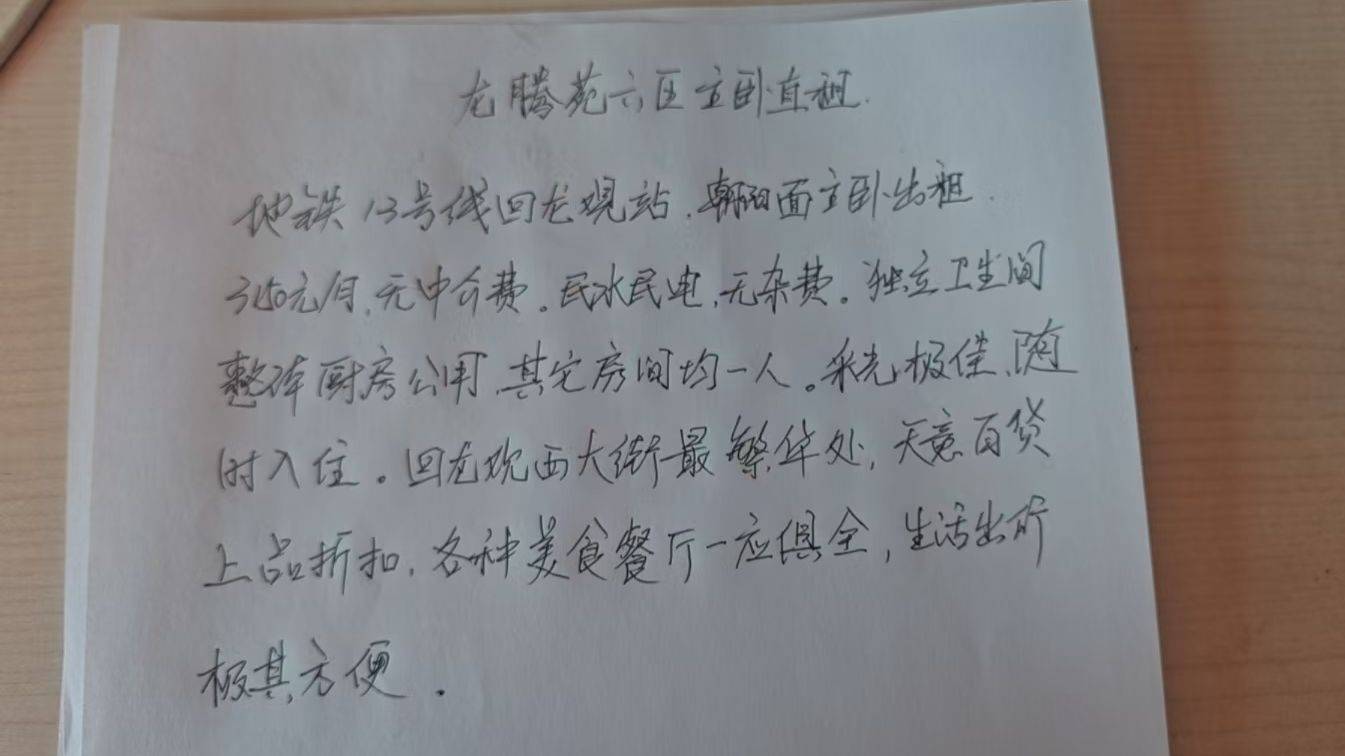 龙腾苑六区主卧直租.
地铁13号线回龙观站.朝阳面主卧出租.
3150元/月,无中介费。民水民电,无杂费。独立卫生间
整体厨房公用,其它房间均一人。采光极佳,随
时入住。回龙观西大街最繁华处,天意百货
上品折扣,各种美食餐厅一应俱全,生活出所
极其方便.